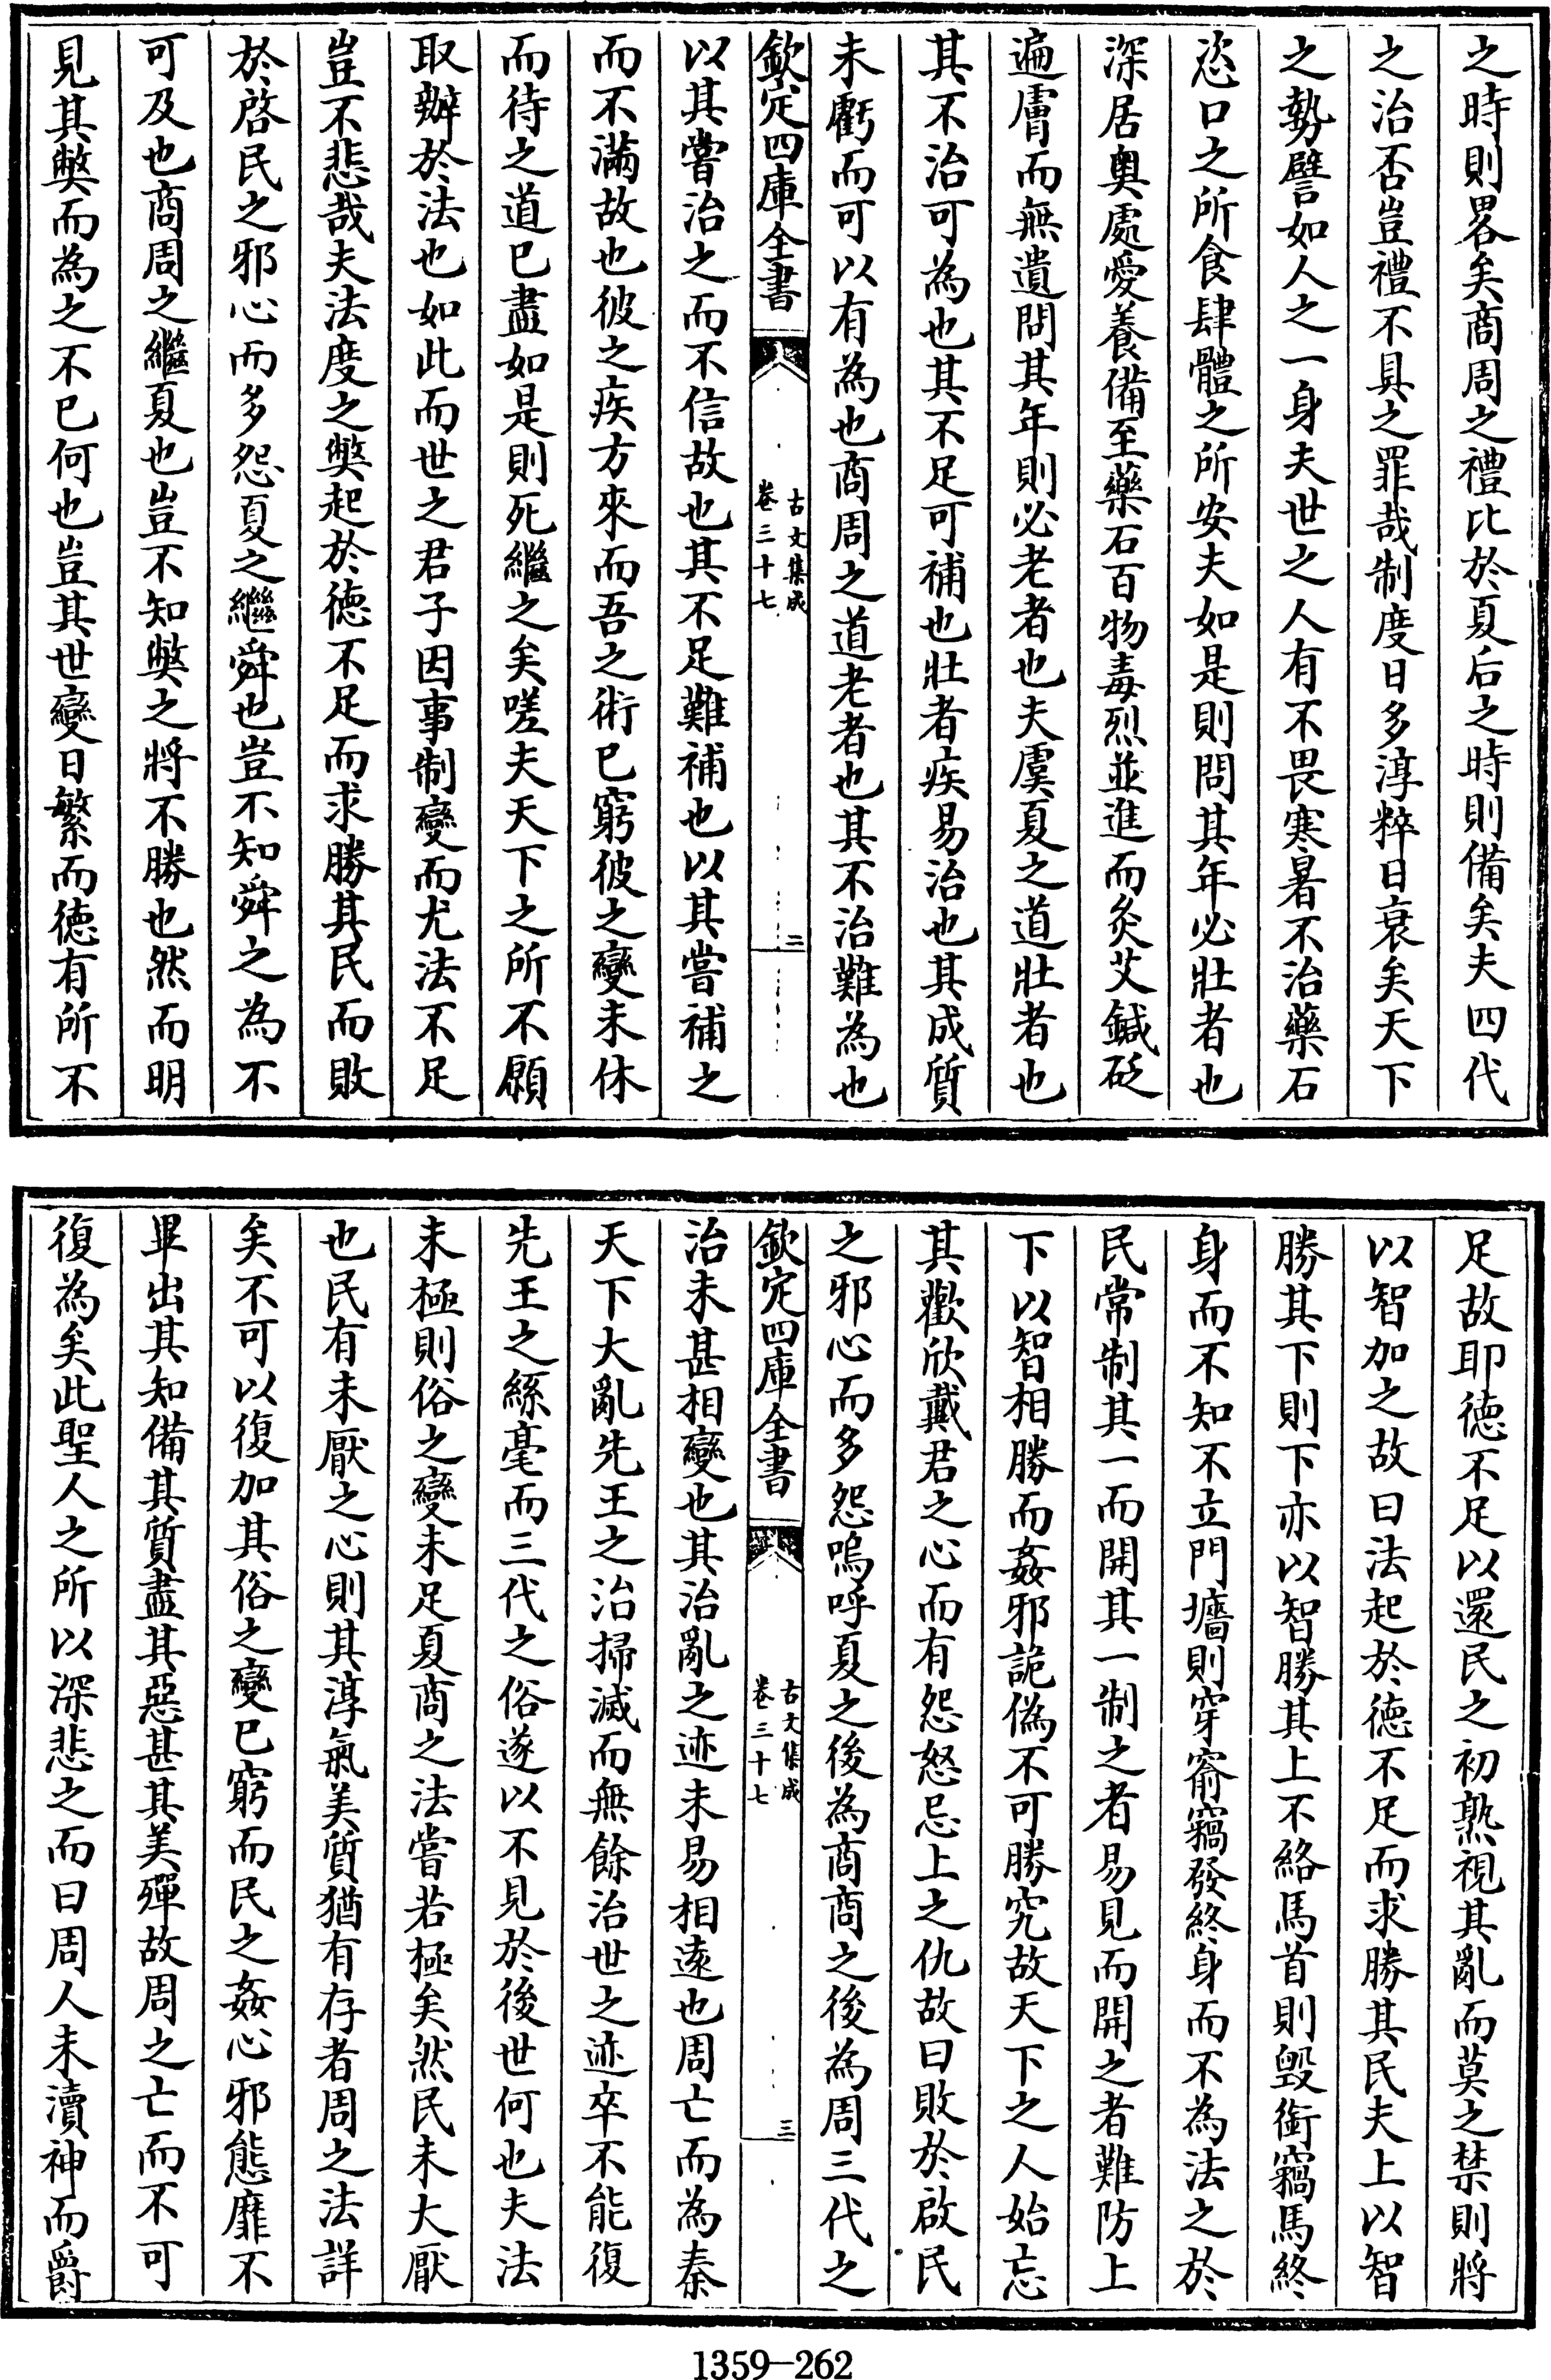 之時則畧矣商周之禮比於夏后之時則備矣夫四代
之治否豈禮不具之罪哉制度日多淳粹日衰矣天下
之勢譬如人之一身夫世之人有不畏寒暑不治藥石
恣口之所食肆體之所安夫如是則問其年必壯者也
深居奥處愛養備至藥石百物毒烈並進而灸艾鍼砭
遍膚而無遺問其年則必老者也夫虞夏之道壯者也
其不治可為也其不足可補也壯者疾易治也其成質
未虧而可以有為也商周之道老者也其不治難為也
欽定四庫全書
古文集成
卷三十七
二
以其嘗治之而不信故也其不足難補也以其嘗補之
而不滿故也彼之疾方來而吾之術已窮彼之變未休
而待之道已盡如是則死繼之矣嗟夫天下之所不願
取辦於法也如此而世之君子因事制變而尤法不足
豈不悲哉夫法度之獘起於徳不足而求勝其民而敗
於啓民之邪心而多怨夏之繼舜也豈不知舜之為不
可及也商周之繼夏也豈不知獘之將不勝也然而明
見其獘而為之不已何也豈其世變日繁而徳有所不
足故耶徳不足以還民之初熟視其亂而莫之禁則將
以智加之故曰法起於徳不足而求勝其民夫上以智
勝其下則下亦以智勝其上不絡馬首則毁銜竊馬終
身而不知不立門墻則穿窬竊發終身而不為法之於
民常制其一而開其一制之者易見而開之者難防上
下以智相勝而姦邪詭偽不可勝究故天下之人始忘
其歡欣戴君之心而有怨怒忌上之仇故曰敗於啟民
之邪心而多怨嗚呼夏之後為商商之後為周三代之
欽定四庫全書
古文集成
卷三十七
三
治未甚相變也其治亂之迹未易相遠也周亡而為秦
天下大亂先王之治掃滅而無餘治世之迹卒不能復
先王之絲毫而三代之俗遂以不見於後世何也夫法
未極則俗之變未足夏商之法嘗若極矣然民未大厭
也民有未厭之心則其淳氣美質猶有存者周之法詳
矣不可以復加其俗之變已窮而民之姦心邪態靡不
畢出其知備其質盡其惡甚其美殫故周之亡而不可
復為矣此聖人之所以深悲之而曰周人未瀆神而爵
1359-262